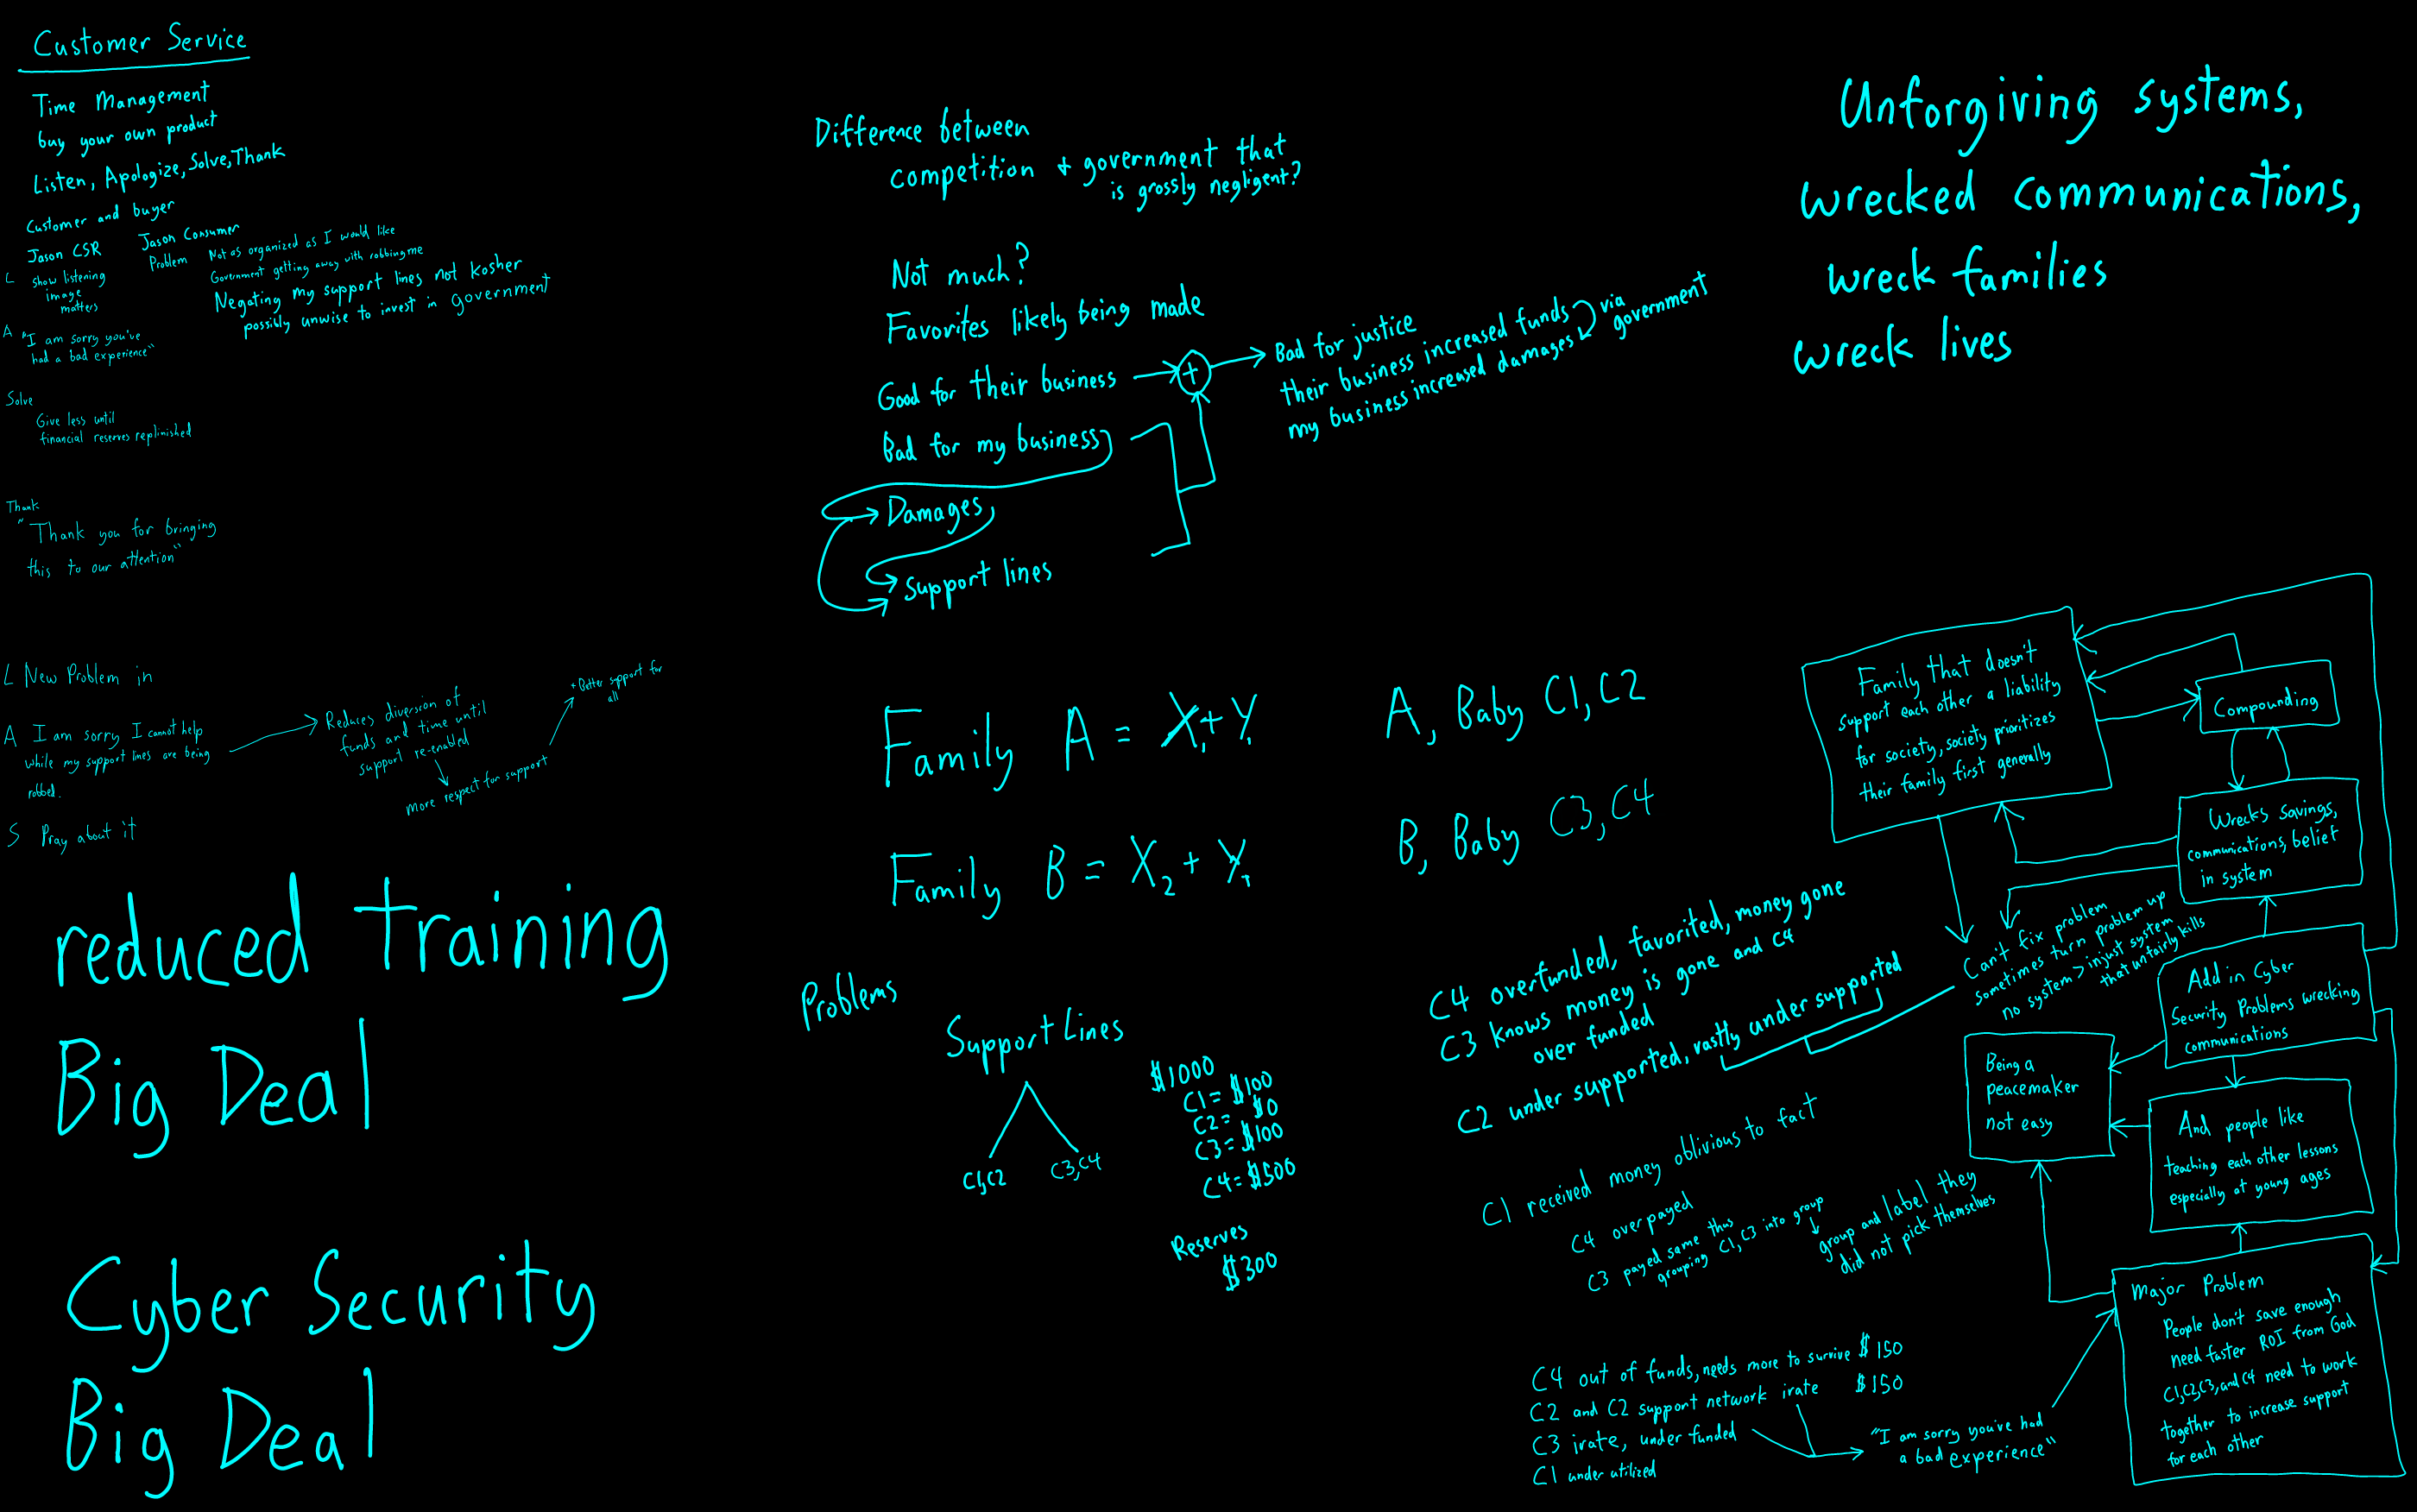 Customer Service
Time Management
buy your own product
Listen, Apologize, Solve, Thank
Customer and buyer
Jason CSR
L show listening
image
matters
A "I am sorry you've
had a bad experience"
Solve
Give less until
financial reserves replinished
Thank
"Thank you for bringing
this to our attention"
Jason Consumer
Problem Not as organized as I would like
Government getting away with robbing me
Negating my support lines not kosher
possibly unwise to invest in government
L New Problem in
A I am sorry I cannot help
while my support lines are being
robbed.
S Pray about it
Reduces diversion of
funds and time until
support re-enabled
more respect for support
+ Better support for
all
reduced training
Big Deal
Cyber Security
Big Deal
Difference between
competition + government that
is grossly negligent?
Not much?
Favorites likely being made
Good for their business
Bad for my business
Damages
support lines
+
Bad for justice
their business increased funds
my business increased damages
via
government
Family A = X1+Y1
A, Baby C1, C2
Family B = X2 + Y1
B, Baby C3, C4
Problems
Support Lines
C1,C2
C3,C4
$1000
C1 = $100
C2 = $0
C3 = $100
C4 = $500
Reserves
$300
C4 overfunded, favorited, money gone
C3 knows money is gone and C4
over funded
C2 under supported, vastly under supported
C1 received money oblivious to fact
C4 overpayed
C3 payed same thus
grouping C1, C3 into group
group and label they
did not pick themselves
C4 out of funds, needs more to survive $150
C2 and C2 support network irate $150
C3 irate, under funded
C1 under utilized
"I am sorry you've had
a bad experience"
Unforgiving systems,
wrecked communications,
wreck families
wreck lives
Family that doesn't
support each other a liability
for society, society prioritizes
their family first generally
Compounding
Wrecks savings,
communications, belief
in system
Can't fix problem
sometimes turn problem up
no system > injust system
that unfairly kills
Add in Cyber
Security Problems wrecking
communications
Being a
peacemaker
not easy
And people like
teaching each other lessons
especially at young ages
Major Problem
People don't save enough
need faster ROI from God
C1,C2,C3, and C4 need to work
together to increase support
for each other